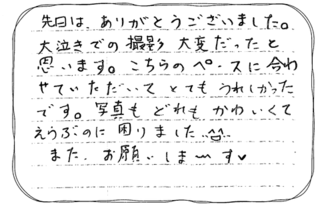 先日は、ありがとうございました。
大泣きでの撮影 大変だったと
思います。こちらのペースに合わ
せていただいて とてもうれしかった
です。写真も どれも かわいくて
えらぶのに 困りました
また、お願いしま〜す♥